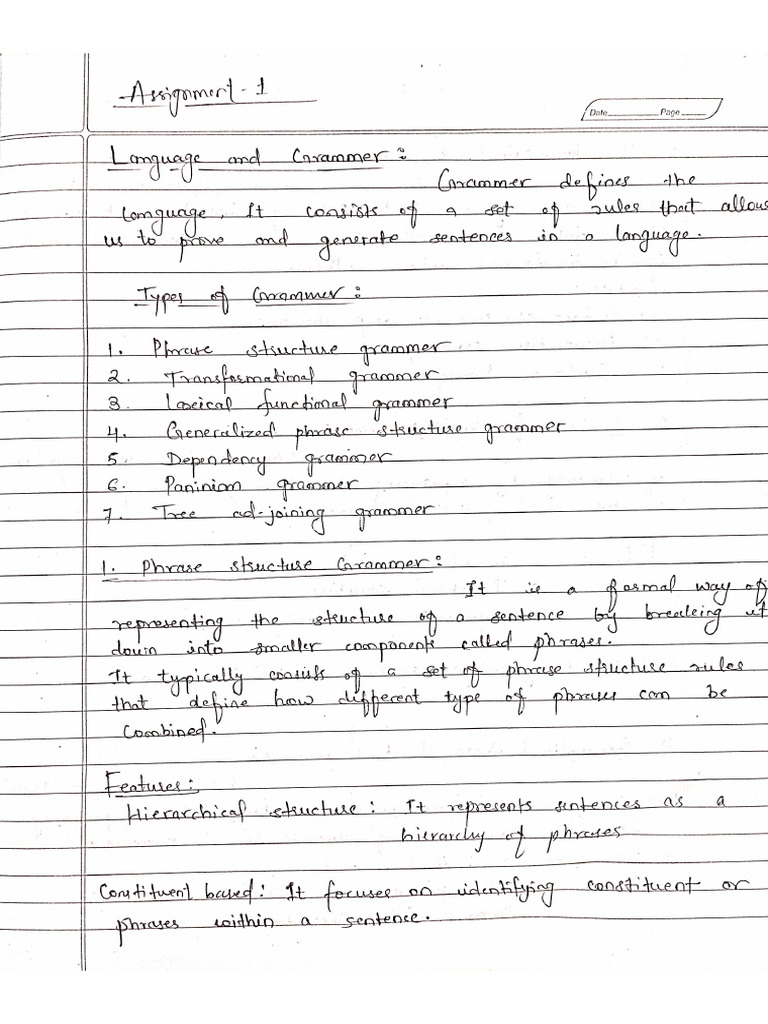 Assignment - 1
Date Page
Language and Grammer :
Grammer defines the
language. It consists of a set of rules that allows
us to prove and generate sentences in a language.
Types of Grammer :
1. Phrase structure grammer
2. Transformational grammer
3. Lexical functional grammer
4. Generalized phrase structure grammer
5. Dependency grammer
6. Paninian grammer
7. Tree ad-joining grammer
1. Phrase structure Grammer :
It is a formal way of
representing the structure of a sentence by breaking it
down into smaller components called phrases.
It typically consists of a set of phrase structure rules
that define how different type of phrases can be
combined.
Features :
Hierarchical structure : It represents sentences as a
hierarchy of phrases
Constituent based : It focuses on identifying constituent or
phrases within a sentence.